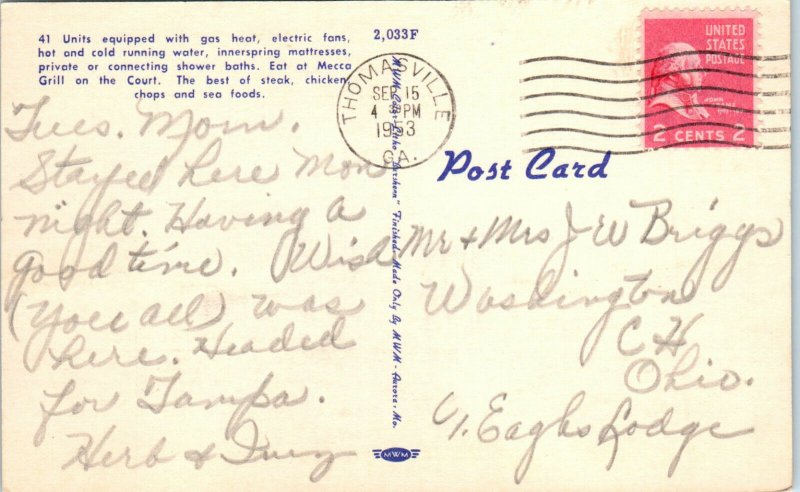 41 Units equipped with gas heat, electric fans,
hot and cold running water, innerspring mattresses,
private or connecting shower baths. Eat at Mecca
Grill on the Court. The best of steak, chicken,
chops and sea foods.
2,033F
THOMASVILLE
SEP 15
4 PM
1953
GA.
UNITED
STATES
POSTAGE
JOHN ADAMS
2 CENTS 2
Post Card
Tues. Morn.
Stayed here Mon
night. Having a
good time. Wish
(you all) was
here. Headed
for Tampa.
Herb & Inez
Mr + Mrs J W Briggs
Washington
C H
Ohio.
% Eagles Lodge
MWM Color-Litho "Finished-Made Only By MWM - Aurora, Mo.
MWM